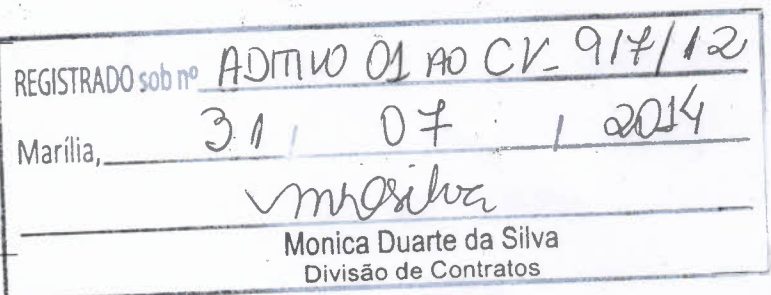 REGISTRADO sob nº ADITIVO 01 AO CV- 917/12
Marília, 31 / 07 / 2014
Monica Duarte da Silva
Divisão de Contratos